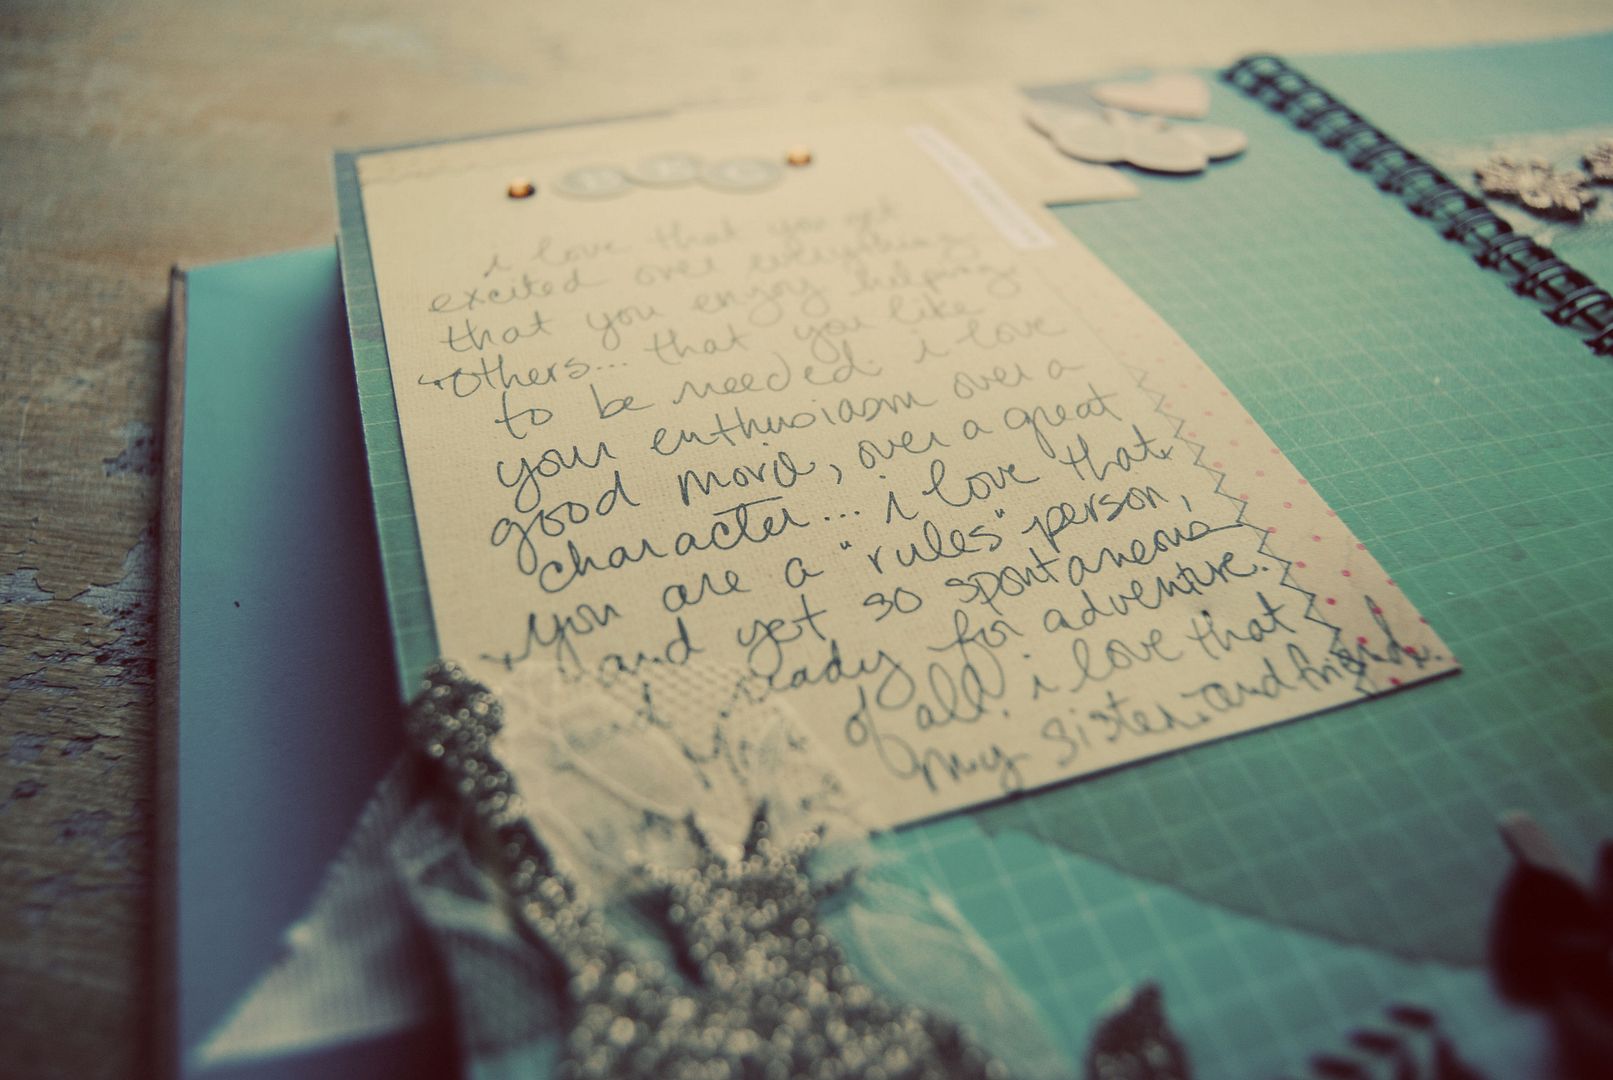 i love that you get
excited over everything
that you enjoy helping
others... that you like
to be needed. i love
your enthusiasm over a
good movie, over a great
character... i love that
you are a "rules" person,
and yet so spontaneous
and ready for adventure.
of all. i love that
my sister and friend.